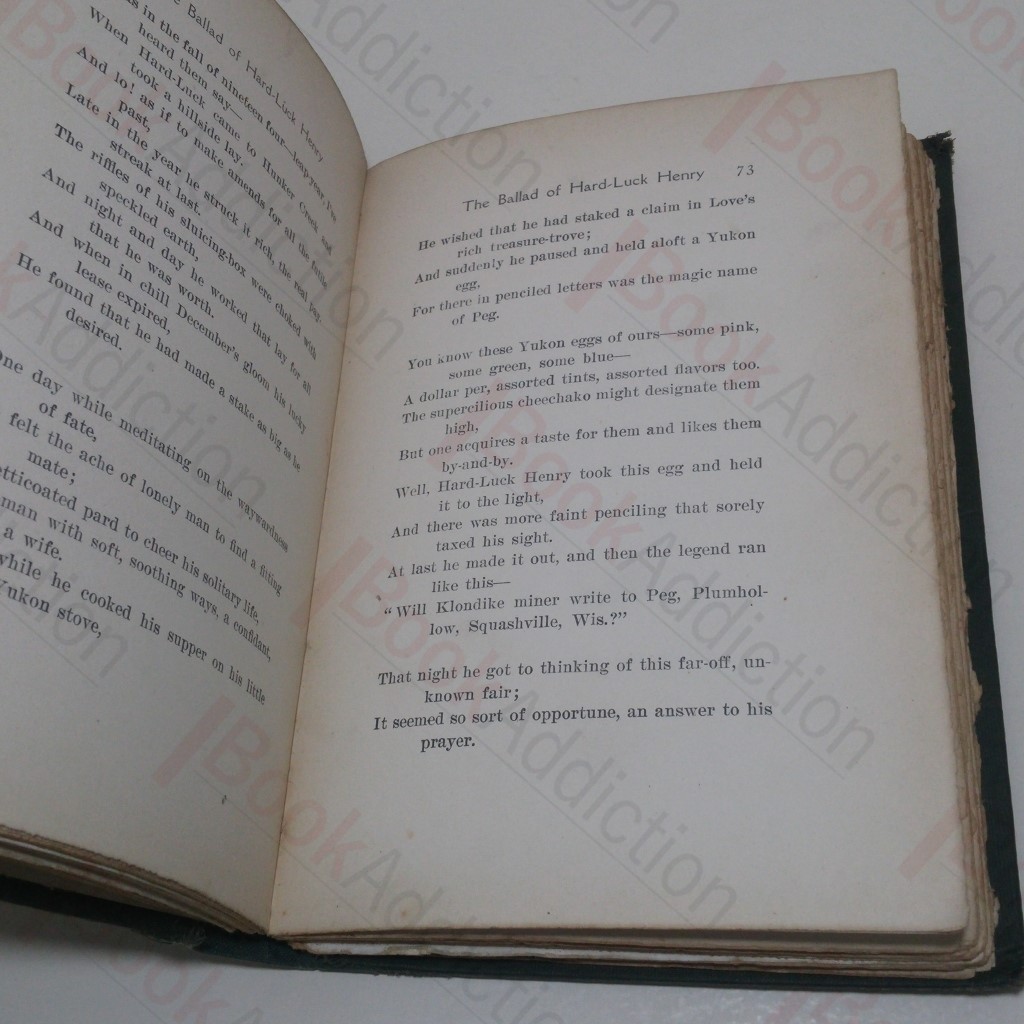 The Ballad of Hard-Luck Henry
in the fall of nineteen four—leap-year I've
heard them say—
When Hard-Luck came to Hunker Creek and
took a hillside lay.
And lo! as if to make amends for all the futile
past,
Late in the year he struck it rich, the real pay-
streak at last.
The riffles of his sluicing-box were choked with
speckled earth,
And night and day he worked that lay for all
that he was worth.
And when in chill December's gloom his lucky
lease expired,
He found that he had made a stake as big as he
desired.
One day while meditating on the waywardness
of fate,
felt the ache of lonely man to find a fitting
mate;
petticoated pard to cheer his solitary life,
man with soft, soothing ways, a confidant,
a wife.
while he cooked his supper on his little
Yukon stove,
The Ballad of Hard-Luck Henry 73
He wished that he had staked a claim in Love's
rich treasure-trove;
And suddenly he paused and held aloft a Yukon
egg,
For there in penciled letters was the magic name
of Peg.
You know these Yukon eggs of ours—some pink,
some green, some blue—
A dollar per, assorted tints, assorted flavors too.
The supercilious cheechako might designate them
high,
But one acquires a taste for them and likes them
by-and-by.
Well, Hard-Luck Henry took this egg and held
it to the light,
And there was more faint penciling that sorely
taxed his sight.
At last he made it out, and then the legend ran
like this—
"Will Klondike miner write to Peg, Plumhol-
low, Squashville, Wis.?"
That night he got to thinking of this far-off, un-
known fair;
It seemed so sort of opportune, an answer to his
prayer.
BookAddiction